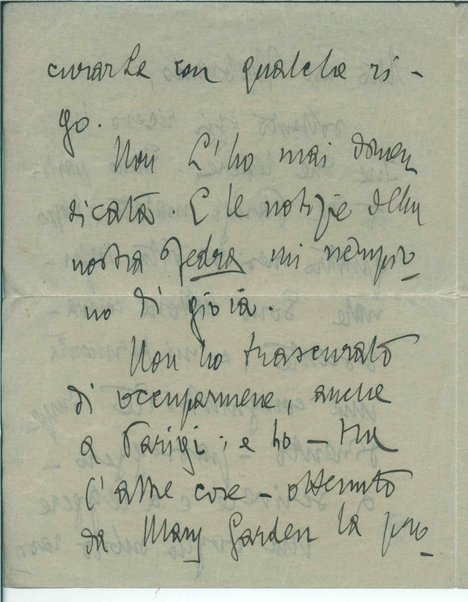 curarLe con qualche ri-
go.
Non L'ho mai dimen
ticata. E le notizie della
nostra Fedra mi riempio
no di gioia.
Non ho trascurato
di occuparmene, anche
a Parigi; e ho – tra
l'altre cose – ottenuto
da Mary Garden la pro